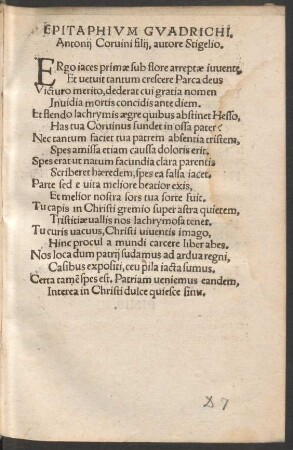 EPITAPHIVM GVADRICHI.
Antonij Coruini filij, autore Stigelio.
Ergo iaces primæ sub flore arreptæ iuuentæ
Et uetuit tantum crescere Parca deus
Victuro merito, dederat cui gratia nomen
Inuidia mortis concidis ante diem.
Et flendo lachrymis ægre quibus abstinet Hesso,
Has tua Coruinus fundet in ossa pater
Nec tantum faciet tua patrem absentia tristem,
Spes amissa etiam caussa doloris erit.
Spes erat ut natum facundia clara parentis
Scriberet hæredem, spes ea falsa iacet.
Parte sed e uita meliore beatior exis,
Et melior nostra sors tua sorte fuit.
Tu capis in Christi gremio super astra quietem,
Tristitiæ uallis nos lachrymosa tenet.
Tu curis uacuus, Christi uiuentis imago,
Hinc procul a mundi carcere liber abes.
Nos loca dum patrij sudamus ad ardua regni,
Casibus expositi, ceu pila iacta sumus.
Certa tamẽ spes est. Patriam ueniemus eandem,
Interea in Christi dulce quiesce sinu.
D 7